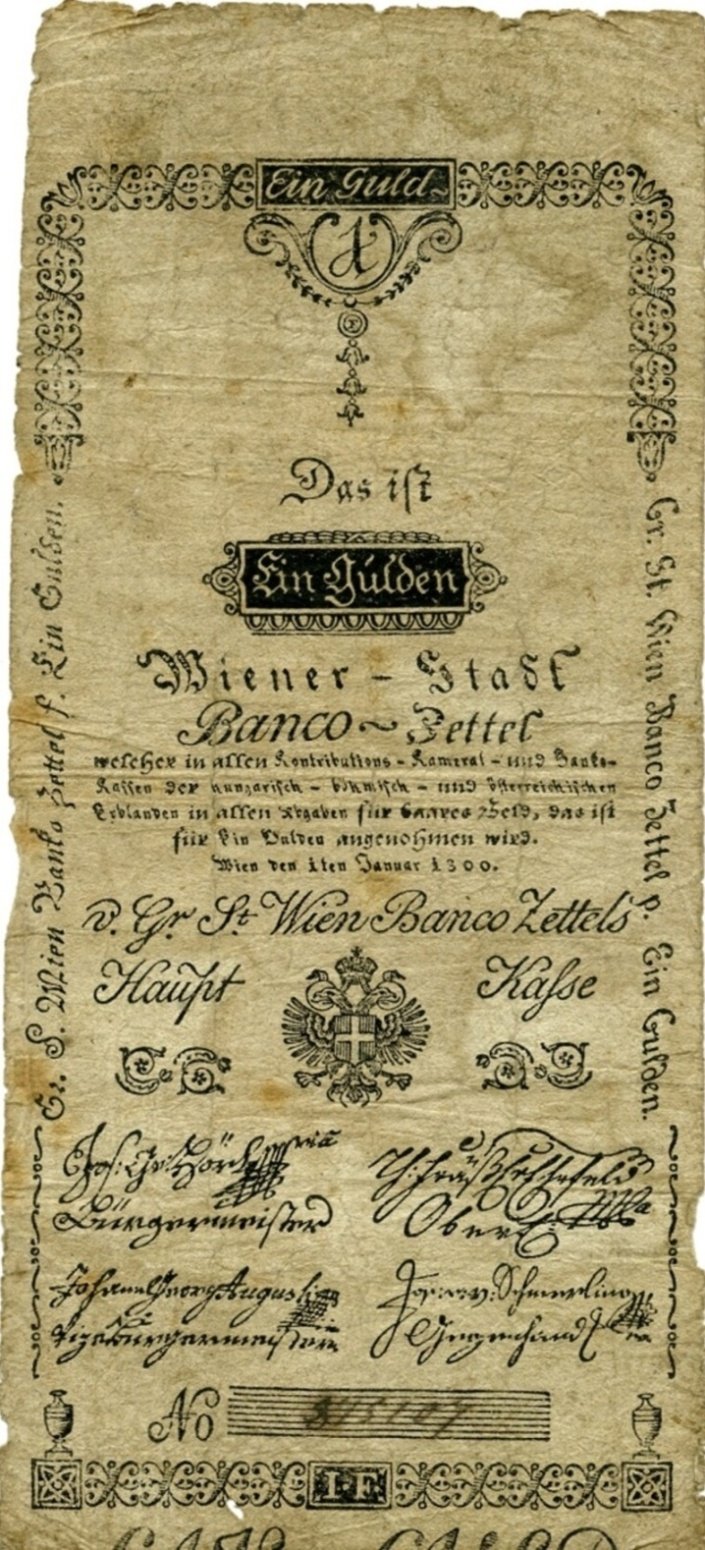 Ein Guld
1
Das ist
Ein Gulden
Wiener - Stadt
Banco ~ Zettel
welcher in allen Kontributions - Kameral - und Banko-
Kassen der hungarisch - böhmisch - und österreichischen
Erblanden in allen Abgaben für baares Geld, das ist
für Ein Gulden angenohmen wird.
Wien den 1ten Januar 1800.
v. Gr St Wien Banco Zettels
Haupt Kasse
Gr. S. Wien Banko Zettel f. Ein Gulden.
Gr. St. Wien Banco Zettel p. Ein Gulden.
Bürgermeister
Johann Georg Augusti
Schmerling
Vizebürgermeister
No
1 F